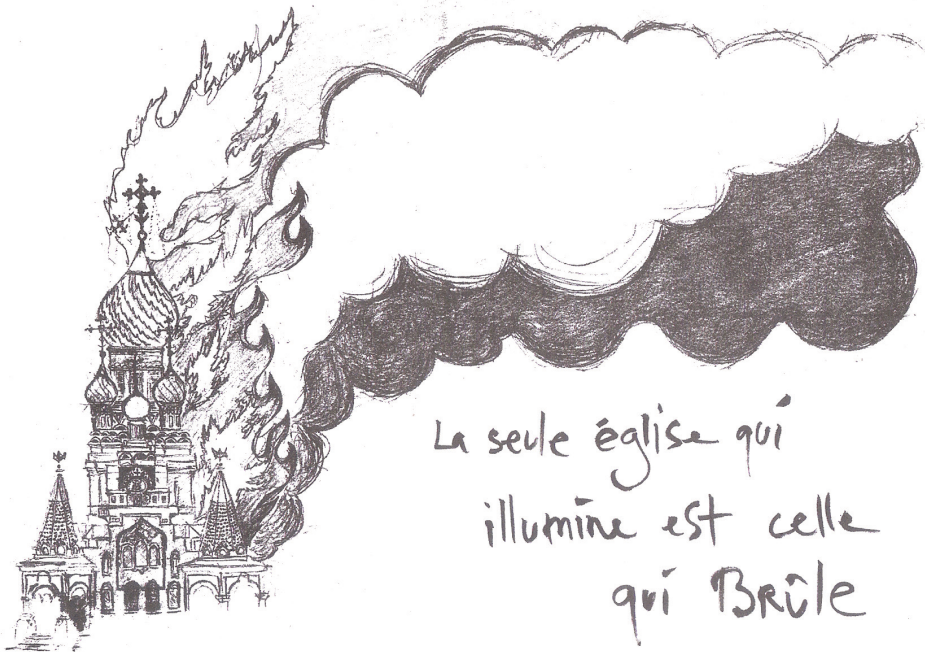 La seule église qui
illumine est celle
qui Brûle